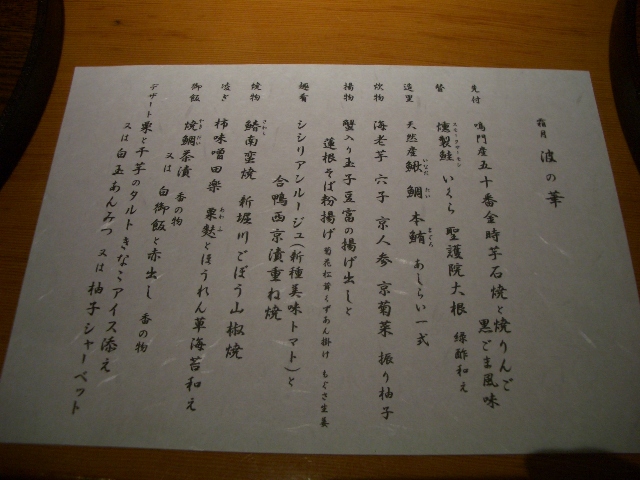 霜月 波の華
先付 鳴門産五十番金時芋石焼と焼りんご
黒ごま風味
替 燻製鮭 いくら 聖護院大根 緑酢和え
スモークサーモン
造里 天然産鰍 鯛 本鮪 あしらい一式
いなだ たい まぐろ
炊物 海老芋 六子 京人参 京菊菜 振り柚子
揚物 蟹入り玉子豆富の揚げ出しと
蓮根そば粉揚げ 菊花松茸くずあん掛け もぐさ生姜
趣肴 シシリアンルージュ(新種美味トマト)と
合鴨西京漬重ね焼
焼物 鰆南蛮焼 新堀川ごぼう山椒焼
さわら
凌ぎ 柿味噌田楽 粟麩とほうれん草海苔和え
あわふ
御飯 焼鯛茶漬 香の物
やきだい
又は 白御飯と赤出し 香の物
デザート 栗と干芋のタルトきなこアイス添え
又は白玉あんみつ 又は柚子シャーベット